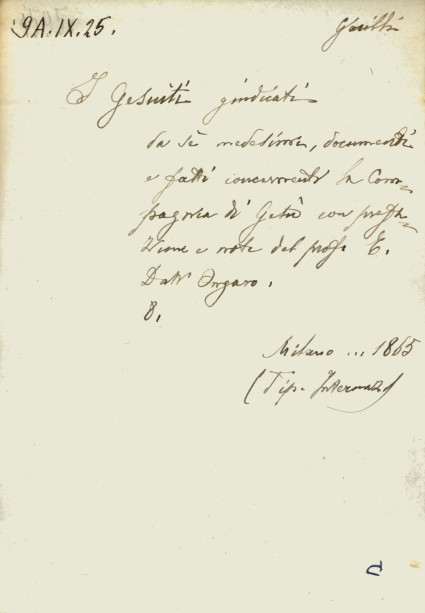 9A.IX.25.
Gesuiti
I Gesuiti giudicati
da sè medesimi, documenti
e fatti concernenti la Com=
pagnia di Gesù con prefa=
zione e note del profe E.
Dall' Ongaro.
8.
Milano ... 1865
(Tip. Internaz)